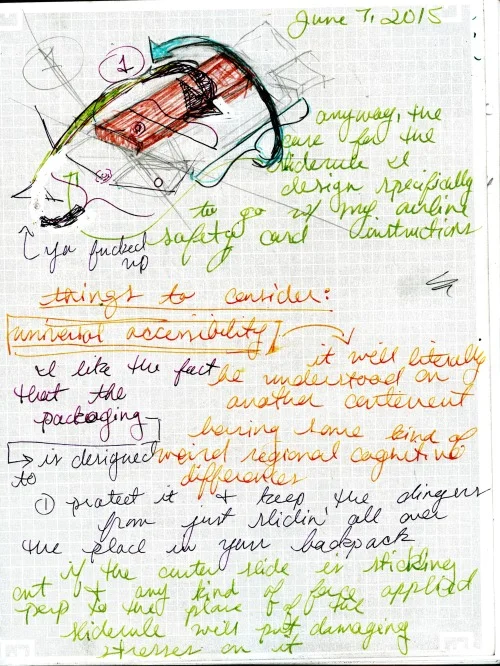 June 7, 2015
1
anyway, the
case for the
sliderule I
design specifically
to go w/ my airline
safety card instructions
you fucked
up
things to consider:
universal accessibility
it will literally
I like the fact
be understood on
that the
another continent
packaging
having some kind of
is designed
weird regional cognitive
to
differences
① protect it & keep the dingers
from just slidin' all over
the place in your backpack
if the center slide is sticking
out & any kind of force applied
perp to the plane of the
sliderule will put damaging
stresses on it